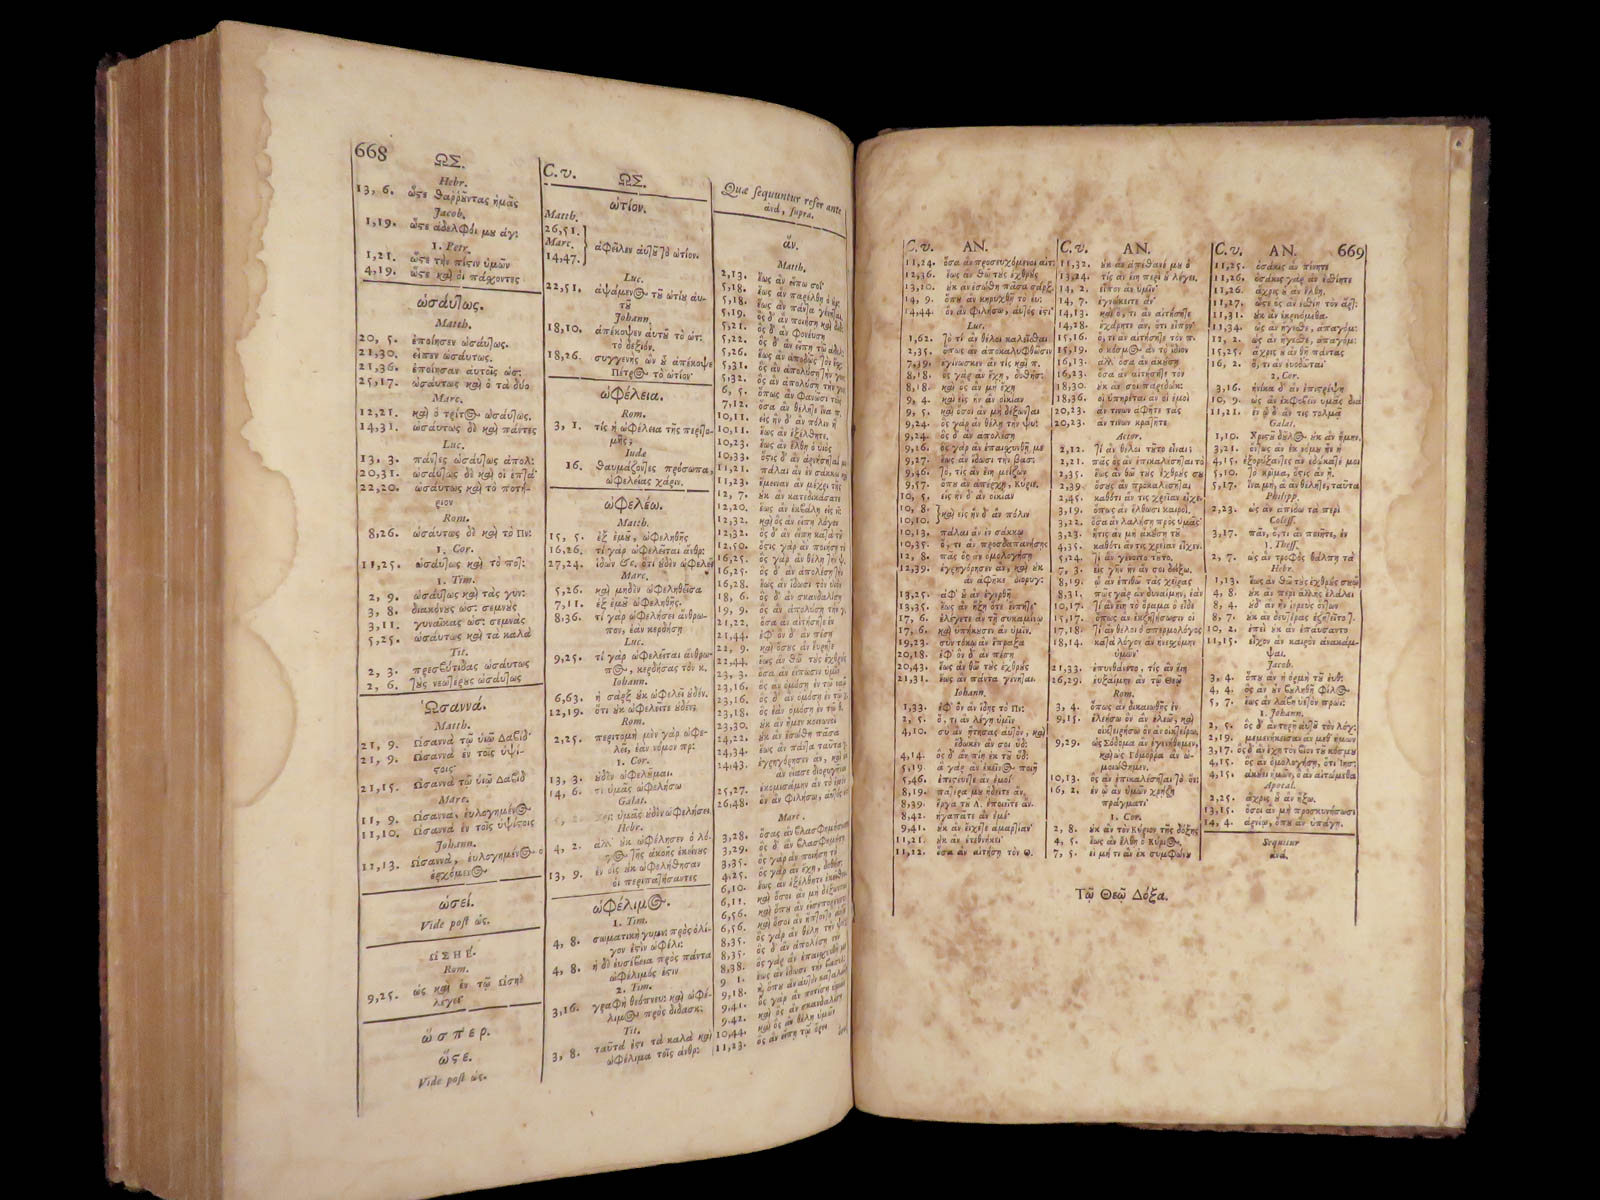 668
ΩΣ.
Hebr.
13, 6. ὥςε θαῤῥοῦντας ἡμᾶς
Jacob.
1,19. ὥςε ἀδελφόι μου ἀγ:
1. Petr.
1,21. ὥςε τὴν πίςιν ὑμῶν
4,19. ὥςε καὶ οἱ πάχοντες
ὡσαύτως.
Matth.
20, 5. ἐποίησεν ὡσαύτως.
21,30. εἶπεν ὡσαύτως.
21,36. ἐποίησαν αυτοῖς ὡσ:
25,17. ὡσαύτως καὶ ὁ τὰ δύο
Marc.
12,21. καὶ ὁ τρίτος ὡσαύτως.
14,31. ὡσαύτως δὲ καὶ πάντες
Luc.
13, 3. πάντες ὡσαύτως ἀπολ:
20,31. ὡσαύτως δὲ καὶ οἱ ἑπτά
22,20. ὡσαύτως καὶ τὸ ποτή-
ριον
Rom.
8,26. ὡσαύτως δὲ καὶ τὸ Πν:
1. Cor.
11,25. ὡσαύτως καὶ τὸ ποτ:
1. Tim.
2, 9. ὡσαύτως καὶ τὰς γυν:
3, 8. διακόνους ὡσ: σεμνοὺς
3,11. γυναῖκας ὡσ: σεμνὰς
5,25. ὡσαύτως καὶ τὰ καλὰ
Tit.
2, 3. πρεσβύτιδας ὡσαύτως
2, 6. τοὺς νεωτέρους ὡσαύτως
Ὡσαννά.
Matth.
21, 9. Ωσαννὰ τῷ υἱῷ Δαβίδ
21, 9. Ωσαννὰ ἐν τοῖς ὑψί-
ςοις
21,15. Ωσαννὰ τῷ υἱῷ Δαβίδ
Marc.
11, 9. Ωσαννὰ, ἐυλογημένος
11,10. Ωσαννὰ ἐν τοῖς ὑψίςοις
Johann.
12,13. Ωσαννὰ, ἐυλογημένος ὁ
ἐρχόμενος
ὡσεί.
Vide post ὡς.
ΩΣΗΕ΄.
Rom.
9,25. ὡς καὶ ἐν τῷ Ωσηὲ
λέγει
ὥσπερ.
ὥςε.
Vide post ὡς.
C. v.
ΩΣ.
ὠτίον.
Matth.
26,51.
Marc.
14,47.
ἀφεῖλεν αὐτοῦ τὸ ὠτίον.
Luc.
22,51. ἁψάμενος τοῦ ὠτίου αυ-
τοῦ
Johann.
18,10. ἀπέκοψεν αυτοῦ τὸ ὠτ:
τὸ δεξιόν.
18,26. συγγενὴς ὢν οὗ ἀπέκοψε
Πέτρος τὸ ὠτίον
ὠφέλεια.
Rom.
3, 1. τίς ἡ ὠφέλεια τῆς περιτο-
μῆς;
Iude
16. θαυμάζοντες πρόσωπα,
ὠφελείας χάριν.
ὠφελέω.
Matth.
15, 5. ἐξ ἐμοῦ, ὠφεληθῆς
16,26. τί γὰρ ὠφελεῖται ἄνθρ:
27,24. ἰδὼν &c. ὅτι οὐδὲν ὠφελεῖ
Marc.
5,26. καὶ μηδὲν ὠφεληθεῖσα
7,11. ἐξ ἐμοῦ ὠφεληθῆς.
8,36. τί γὰρ ὠφελήσει ἄνθρω-
πον, ἐὰν κερδήσῃ
Luc.
9,25. τί γὰρ ὠφελεῖται ἄνθρω-
πος, κερδήσας τὸν κ.
Iohann.
6,63. ἡ σὰρξ οὐκ ὠφελεῖ οὐδέν.
12,19. ὅτι οὐκ ὠφελεῖτε οὐδέν;
Rom.
2,25. περιτομὴ μὲν γὰρ ὠφε-
λεῖ, ἐὰν νόμον πρ:
1. Cor.
13, 3. οὐδὲν ὠφελοῦμαι.
14, 6. τί ὑμᾶς ὠφελήσω
Galat.
ὑμᾶς οὐδὲν ὠφελήσει.
Hebr.
4, 2. ἀλλ' οὐκ ὠφέλησεν ὁ λό-
γος τῆς ἀκοῆς ἐκείνους
13, 9. ἐν οἷς οὐκ ὠφελήθησαν
οἱ περιπατήσαντες
ὠφέλιμος.
1. Tim.
4, 8. σωματικὴ γυμν: πρὸς ὀλί-
γον ἐςὶν ὠφέλι:
4, 8. ἡ δὲ ἐυσέβεια πρὸς πάντα
ὠφέλιμός ἐςιν
2. Tim.
3,16. γραφὴ θεόπνευ: καὶ ὠφέ-
λιμος πρὸς διδασκ:
Tit.
3, 8. ταῦτά ἐςι τὰ καλὰ καὶ
ὠφέλιμα τοῖς ἀνθρ:
Quæ sequuntur refer ante
ἀνά, supra.
ἄν.
Matth.
2,13. ἕως ἂν εἴπω σοι
5,18. ἕως ἂν παρέλθῃ ὁ οὐρ
5,18. ἕως ἂν πάντα γένηται.
5,19. ὃς δ' ἂν ποιήσῃ καὶ διδ:
5,21. ὃς δ' ἂν φονέυσῃ
5,22. ὃς δ' ἂν εἴπῃ τῷ ἀδελ:
5,26. ἕως ἂν ἀποδῷς τὸν ἔσχ.
5,31. ὃς ἂν ἀπολύσῃ τὴν γυν:
5,32. ὃς ἂν ἀπολύσῃ τὴν γυν
6, 5. ὅπως ἂν φανῶσι τοῖς
7,12. ὅσα ἂν θέλητε ἵνα π.
10,11. εἰς ἣν δ' ἂν πόλιν ἢ
10,11. ἕως ἂν ἐξέλθητε.
10,23. ἕως ἂν ἔλθῃ ὁ υἱὸς
10,33. ὅςις δ' ἂν ἀρνήσηταί με
11,21. πάλαι ἂν ἐν σάκκῳ
11,23. ἔμειναν ἂν μέχρι τῆς
12, 7. οὐκ ἂν κατεδικάσατε
12,20. ἕως ἂν ἐκβάλῃ εἰς νῖ:
12,32. καὶ ὃς ἂν εἴπῃ λόγον
12,32. ὃς δ' ἂν εἴπῃ κατὰ τοῦ
12,50. ὅςις γὰρ ἂν ποιήσῃ τὸ
16,25. ὃς γὰρ ἂν θέλῃ τὴν ψ.
16,25. ὃς δ' ἂν ἀπολέσῃ τὴν
16,28. ἕως ἂν ἴδωσι τὸν υἱὸν
18, 6. ὃς δ' ἂν σκανδαλίσῃ
19, 9. ὃς ἂν ἀπολύσῃ τὴν γ.
21,22. ὅσα ἂν αἰτήσητε ἐν
21,44. ἐφ' ὃν δ' ἂν πέσῃ
22, 9. καὶ ὅσους ἂν εὕρητε
22,44. ἕως ἂν θῶ τοὺς ἐχθρούς
23, 3. ὅσα ἂν εἴπωσιν ὑμῖν
23,16. ὃς ἂν ὀμόσῃ ἐν τῷ ναῷ
23,16. ὃς δ' ἂν ὀμόσῃ ἐν τῷ χ.
23,18. ὃς ἐὰν ὀμόσῃ ἐν τῷ θ.
23,30. οὐκ ἂν ἦμεν κοινωνοὶ
24,22. οὐκ ἂν ἐσώθη πᾶσα
24,34. ἕως ἂν πάντα ταῦτα γ.
24,43. ἐγρηγόρησεν ἂν, καὶ οὐκ
ἂν εἴασε διορυγῆναι
25,27. ἐκομισάμην ἂν τὸ ἐμὸν
26,48. ὃν ἂν φιλήσω, αὐτός ἐςι
Marc.
3,28. ὅσας ἂν βλασφημήσωσι
3,29. ὃς δ' ἂν βλασφημήσῃ
3,35. ὃς γὰρ ἂν ποιήσῃ τὸ
4,25. ὃς γὰρ ἂν ἔχῃ, δοθήσ:
6,10. ἕως ἂν ἐξέλθητε ἐκεῖθεν
6,11. καὶ ὅσοι ἂν μὴ δέξωνται
6,56. καὶ ὅπου ἂν εἰσεπορεύετο
6,56. καὶ ὅσοι ἂν ἥπτοντο αὐτοῦ
8,35. ὃς γὰρ ἂν θέλῃ τὴν ψυχὴν
8,35. ὃς δ' ἂν ἀπολέσῃ τὴν
8,38. ὃς γὰρ ἂν ἐπαισχυνθῇ με
9, 1. ἕως ἂν ἴδωσι τὴν βασιλ:
9,18. ὅπου ἂν αὐτὸν καταλάβῃ
9,41. ὃς γὰρ ἂν ποτίσῃ ὑμᾶς
9,42. καὶ ὃς ἂν σκανδαλίσῃ
10,44. καὶ ὃς ἂν θέλῃ ὑμῶν
11,23. ὃς ἂν εἴπῃ τῷ ὄρει
C. v. AN.
11,24. ὅσα ἂν προσευχόμενοι αἰτ:
12,36. ἕως ἂν θῶ τοὺς ἐχθρούς
13,20. οὐκ ἂν ἐσώθη πᾶσα σάρξ.
14, 9. ὅπου ἂν κηρυχθῇ τὸ ευ:
14,44. ὃν ἂν φιλήσω, αὐτός ἐςι
Luc.
1,62. τὸ τί ἂν θέλοι καλεῖσθαι
2,35. ὅπως ἂν ἀποκαλυφθῶσιν
7,39. ἐγίνωσκεν ἂν τίς καὶ π.
8,18. ὃς γὰρ ἂν ἔχῃ, δοθήσ:
8,18. καὶ ὃς ἂν μὴ ἔχῃ
9, 4. καὶ εἰς ἣν ἂν οἰκίαν
9, 5. καὶ ὅσοι ἂν μὴ δέξωνται
9,24. ὃς γὰρ ἂν θέλῃ τὴν ψυχ
9,24. ὃς δ' ἂν ἀπολέσῃ
9,26. ὃς γὰρ ἂν ἐπαισχυνθῇ με
9,27. ἕως ἂν ἴδωσι τὴν βασ:
9,46. τὸ, τίς ἂν ἔιη μείζων
9,57. ὅπου ἂν ἀπέρχῃ, κύριε.
10, 5. εἰς ἣν δ' ἂν οἰκίαν
10, 8.
10,10. καὶ εἰς ἣν δ' ἂν πόλιν
10,13. πάλαι ἂν ἐν σάκκῳ
10,35. ὅ, τι ἂν προσδαπανήσῃς
12, 8. πᾶς ὃς ἂν ὁμολογήσῃ
12,39. ἐγρηγόρησεν ἂν, καὶ οὐκ
ἂν ἀφῆκε διορυγ:
13,25. ἀφ' οὗ ἂν ἐγερθῇ
13,35. ἕως ἂν ἥξῃ ὅτε εἴπητε
17, 6. ἐλέγετε ἂν τῇ συκαμίνῳ
17, 6. καὶ ὑπήκουσεν ἂν ὑμῖν.
19,23. σὺν τόκῳ ἂν ἔπραξα
20,18. ἐφ' ὃν δ' ἂν πέσῃ
20,43. ἕως ἂν θῶ τοὺς ἐχθρούς
21,32. ἕως ἂν πάντα γένηται.
Iohann.
1,33. ἐφ' ὃν ἂν ἴδῃς τὸ Πν:
2, 5. ὅ, τι ἂν λέγῃ ὑμῖν
4,10. σὺ ἂν ᾔτησας αὐτὸν, καὶ
ἔδωκεν ἄν σοι ὕδ:
4,14. ὃς δ' ἂν πίῃ ἐκ τοῦ ὕδ:
5,19. ἃ γὰρ ἂν ἐκεῖνος ποιῇ
5,46. ἐπιςεύετε ἂν ἐμοί
8,19. πατέρα μου ᾔδειτε ἄν.
8,39. ἔργα τοῦ Α. ἐποιεῖτε ἄν.
8,42. ἠγαπᾶτε ἂν ἐμέ
9,41. οὐκ ἂν εἴχετε ἁμαρτίαν
11,21. οὐκ ἂν ἐτεθνήκει
11,22. ὅσα ἂν αἰτήσῃ τὸν Θ.
C. v. AN.
11,32. οὐκ ἂν ἀπέθανέ μου ὁ
13,24. τίς ἂν εἴη περὶ οὗ λέγει.
14, 2. εἶπον ἂν ὑμῖν
14, 7. ἐγνώκειτε ἂν
14,13. καὶ ὅ, τι ἂν αἰτήσητε
14,28. ἐχάρητε ἄν, ὅτι εἶπον
15,16. ὅ, τι ἂν αἰτήσητε τὸν π.
15,19. ὁ κόσμος ἂν τὸ ἴδιον
16,13. ἀλλ' ὅσα ἂν ἀκούσῃ
16,23. ὅσα ἂν αἰτήσητε τὸν
18,30. οὐκ ἄν σοι παρεδώκ:
18,36. οἱ ὑπηρέται ἂν οἱ ἐμοὶ
20,23. ἄν τινων ἀφῆτε τὰς
20,23. ἄν τινων κρατῆτε
Actor.
2,12. τί ἂν θέλοι τοῦτο εἶναι;
2,21. πᾶς ὃς ἂν ἐπικαλέσηται τὸ
2,35. ἕως ἂν θῶ τοὺς ἐχθρούς σου
2,39. ὅσους ἂν προσκαλέσηται
2,45. καθότι ἄν τις χρείαν εἶχε.
3,19. ὅπως ἂν ἔλθωσι καιροί.
3,22. ὅσα ἂν λαλήσῃ πρὸς ὑμᾶς
3,23. ἥτις ἂν μὴ ἀκούσῃ τοῦ
4,35. καθότι ἄν τις χρείαν εἶχεν.
5,24. τί ἂν γένοιτο τοῦτο.
7, 3. εἰς γῆν ἣν ἄν σοι δείξω.
8,19. ᾧ ἂν ἐπιθῶ τὰς χεῖρας
8,31. πῶς γὰρ ἂν δυναίμην, ἐὰν
10,17. τί ἂν εἴη τὸ ὅραμα ὃ εἶδε
15,17. ὅπως ἂν ἐκζητήσωσιν οἱ
17,18. τί ἂν θέλοι ὁ σπερμολόγος
18,14. κατὰ λόγον ἂν ἠνεσχόμην
ὑμῶν
21,33. ἐπυνθάνετο, τίς ἂν εἴη
26,29. ἐυξαίμην ἂν τῷ Θεῷ
Rom.
3, 4. ὅπως ἂν δικαιωθῇς ἐν
9,15. ἐλεήσω ὃν ἂν ἐλεῶ, καὶ
οἰκτειρήσω ὃν ἂν οἰκτείρω,
9,29. ὡς Σόδομα ἂν ἐγενήθημεν,
καὶ ὡς Γόμοῤῥα ἂν ὡ-
μοιώθημεν.
10,13. ὃς ἂν ἐπικαλέσηται τὸ ὄν:
16, 2. ἐν ᾧ ἂν ὑμῶν χρῄζῃ
πράγματι
1. Cor.
2, 8. οὐκ ἂν τὸν Κύριον τῆς δόξης
4, 5. ἕως ἂν ἔλθῃ ὁ Κύριος,
7, 5. εἰ μή τι ἂν ἐκ συμφώνου
C. v. AN. 669
11,25. ὁσάκις ἂν πίνητε
11,26. ὁσάκις γὰρ ἂν ἐσθίητε
11,26. ἄχρις οὗ ἂν ἔλθῃ.
11,27. ὥςε ὃς ἂν ἐσθίῃ τὸν ἄρτ:
11,31. οὐκ ἂν ἐκρινόμεθα.
11,34. ὡς ἂν
12, 2. ὡς ἂν ἤγεσθε, ἀπαγόμ:
15,25. ἄχρις οὗ ἂν θῇ πάντας
16, 2. ὅ, τι ἂν ἐυοδῶται
2. Cor.
3,16. ἡνίκα δ' ἂν ἐπιςρέψῃ
10, 9. ὡς ἂν ἐκφοβεῖν ὑμᾶς διὰ
11,21. ἐν ᾧ δ' ἄν τις τολμᾷ
Galat.
1,10. Χριςοῦ δοῦλος οὐκ ἂν ἤμην.
3,21. ὄντως ἂν ἐκ νόμου ἦν ἡ
4,15. ἐξορύξαντες ἂν ἐδώκατέ μοι
5,10. τὸ κρίμα, ὅςις ἂν ᾖ.
5,17. ἵνα μὴ, ἃ ἂν θέλητε, ταῦτα
Philipp.
2,23. ὡς ἂν ἀπίδω τὰ περὶ
Coloss.
3,17. πᾶν, ὅ, τι ἂν ποιῆτε, ἐν
1. Thess.
2, 7. ὡς ἂν τροφὸς θάλπῃ τὰ
Hebr.
1,13. ἕως ἂν θῶ τοὺς ἐχθρούς σου
4, 8. οὐκ ἂν περὶ ἄλλης ἐλάλει
8, 4. οὐδ' ἂν ἦν ἱερεὺς ὄντων
8, 7. οὐκ ἂν δευτέρας ἐζητεῖτο τ.
10, 2. ἐπεὶ οὐκ ἂν ἐπαύσαντο
11,15. εἶχον ἂν καιρὸν ἀνακάμ-
ψαι.
Jacob.
3, 4. ὅπου ἂν ἡ ὁρμὴ τοῦ ἐυθ:
4, 4. ὃς ἂν οὖν βουληθῇ φίλος
5, 7. ἕως ἂν λάβῃ ὑετὸν πρωϊ:
1. Johann.
2, 5. ὃς δ' ἂν τηρῇ αὐτοῦ τὸν λόγ:
2,19. μεμενήκεισαν ἂν μεθ' ἡμῶν
3,17. ὃς δ' ἂν ἔχῃ τὸν βίον τοῦ κόσμου
4,15. ὃς ἂν ὁμολογήσῃ, ὅτι Ἰησ:
Apocal.
2,25. ἄχρις οὗ ἂν ἥξω.
13,15. ὅσοι ἂν μὴ προσκυνήσωσι
14, 4. ἀρνίῳ, ὅπου ἂν ὑπάγῃ.
Sequitur
ἀνά.
Τῷ Θεῷ Δόξα.